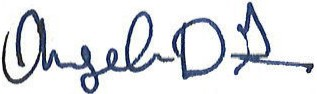 Angela D